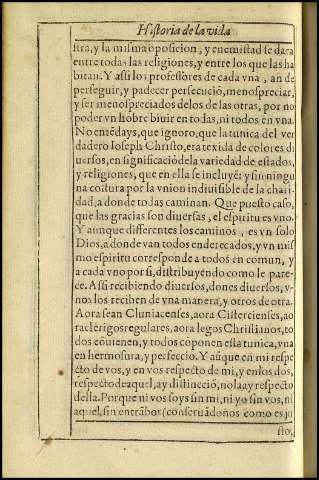 Historia de la vida
stra, y la misma oposicion, y enemistad se dara
entre todas las religiones, y entre los que las ha
bitan. Y assi los professores de cada vna, an de
perseguir, y padecer persecució, menospreciar,
y ser menospreciados de los de las otras, por no
poder vn hóbre biuir en todas, ni todos en vna.
No entédays, que ignoro, que la tunica del ver
dadero Ioseph Christo, era texida de colores di
uersos, en significació de la variedad de estados,
y religiones, que en ella se incluyé: y sin ningu
na costura por la vnion indiuisible de la chari
dad, a donde todas caminan. Que puesto caso,
que las gracias son diuersas, el espiritu es vno.
Y aunque differentes los caminos, es vn solo
Dios, a donde van todos endereçados, y vn mis
mo espiritu corresponde a todos en comun, y
a cada vno por si, distribuyédo como le pare-
ce. Assi recibiendo diuersos, dones diuersos, v-
nos los reciben de vna manera, y otros de otra.
Aora sean Cluniacenses, aora Cistercienses, ao
ra clerigos regulares, aora legos Christianos, to
dos cóuienen, y todos cóponen esta tunica, vna
en hermosura, y perfecció. Y aúque en mi respe
cto de vos, y en vos respecto de mi, y en los dos,
respecto de aquel, ay distincció, no la ay respecto
della. Porque ni vos soys sin mi, ni yo sin vos, ni
aquel, sin entrábos (conseruádo nos como es ju
sto,